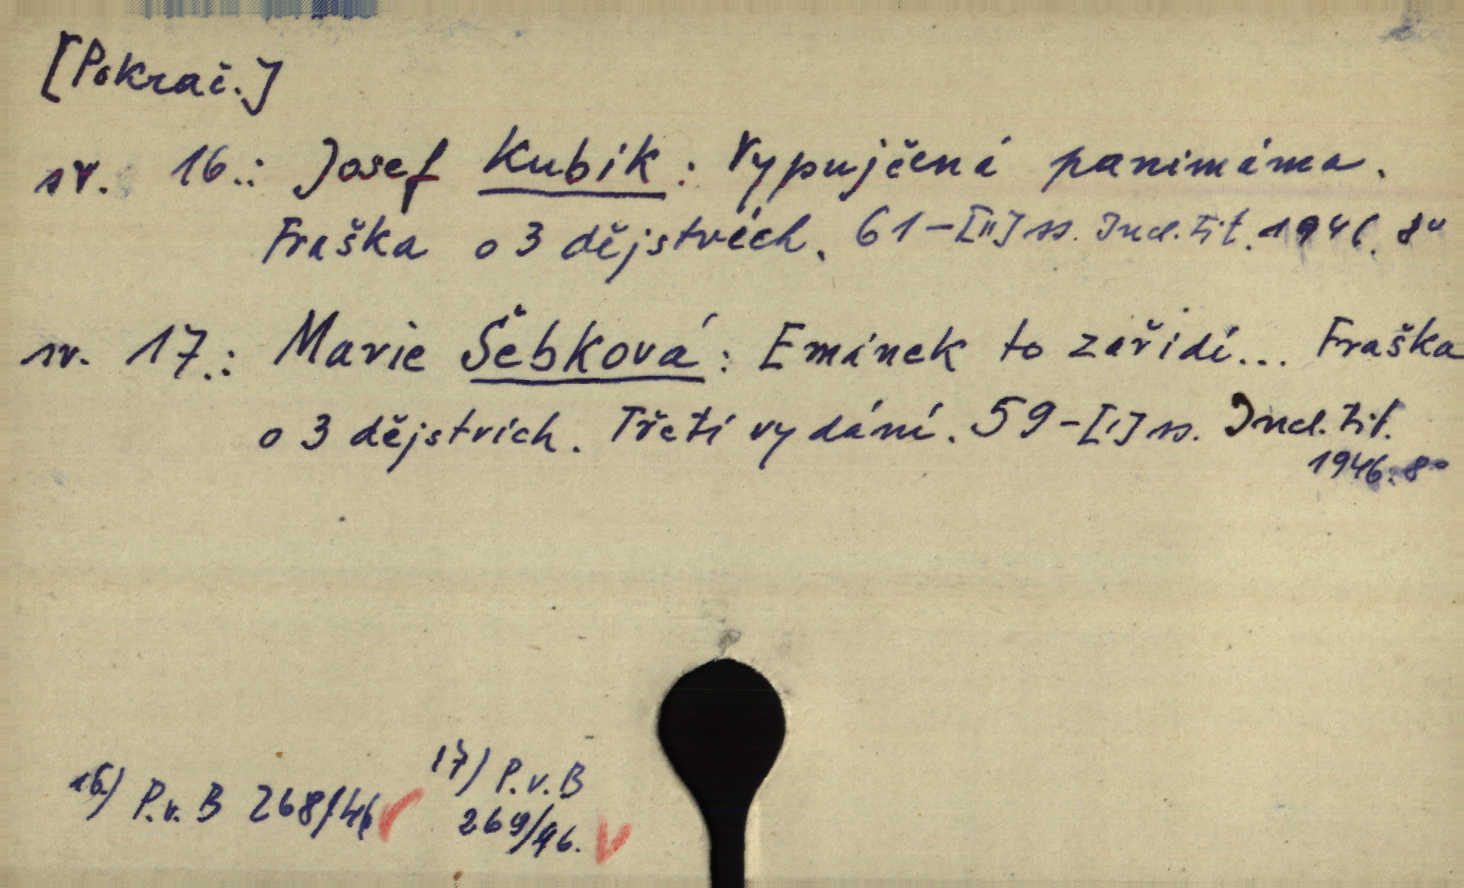 [Pokrač.]
sv. 16.: Josef Kubík: Vypujčená panímáma.
Fraška o 3 dějstvích. 61-[II] ss. Incl. tit. 1946. 8°
sv. 17.: Marie Šebková: Emánek to zařídí... Fraška
o 3 dějstvích. Třetí vydání. 59-[I] ss. Incl. tit.
1946. 8°
16) P.v. B 268/46
17) P.v. B
269/46.